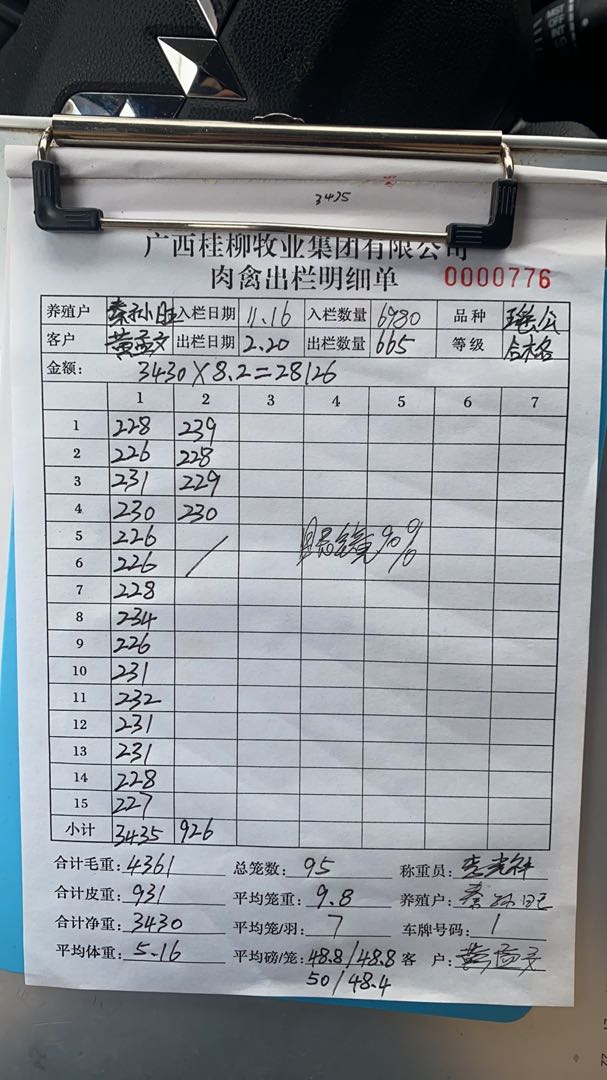 3435
广西桂柳牧业集团有限公司
肉禽出栏明细单 0000776
养殖户 秦孙旺 入栏日期 11.16 入栏数量 6980 品种
客户 黄孟文 出栏日期 2.20 出栏数量 665 等级 合格
金额: 3430×8.2=28126
1 2 3 4 5 6 7
1 228 239
2 226 228
3 231 229
4 230 230
5 226
6 226 /
7 228
8 234
9 226
10 231
11 232
12 231
13 231
14 228
15 227
眼镜90%
小计 3435 926
合计毛重: 4361 总笼数: 95 称重员:
合计皮重: 931 平均笼重: 9.8 养殖户: 秦孙旺
合计净重: 3430 平均笼/羽: 7 车牌号码: 1
平均体重: 5.16 平均磅/笼: 48.8/48.8 客户: 黄孟文
50/48.4